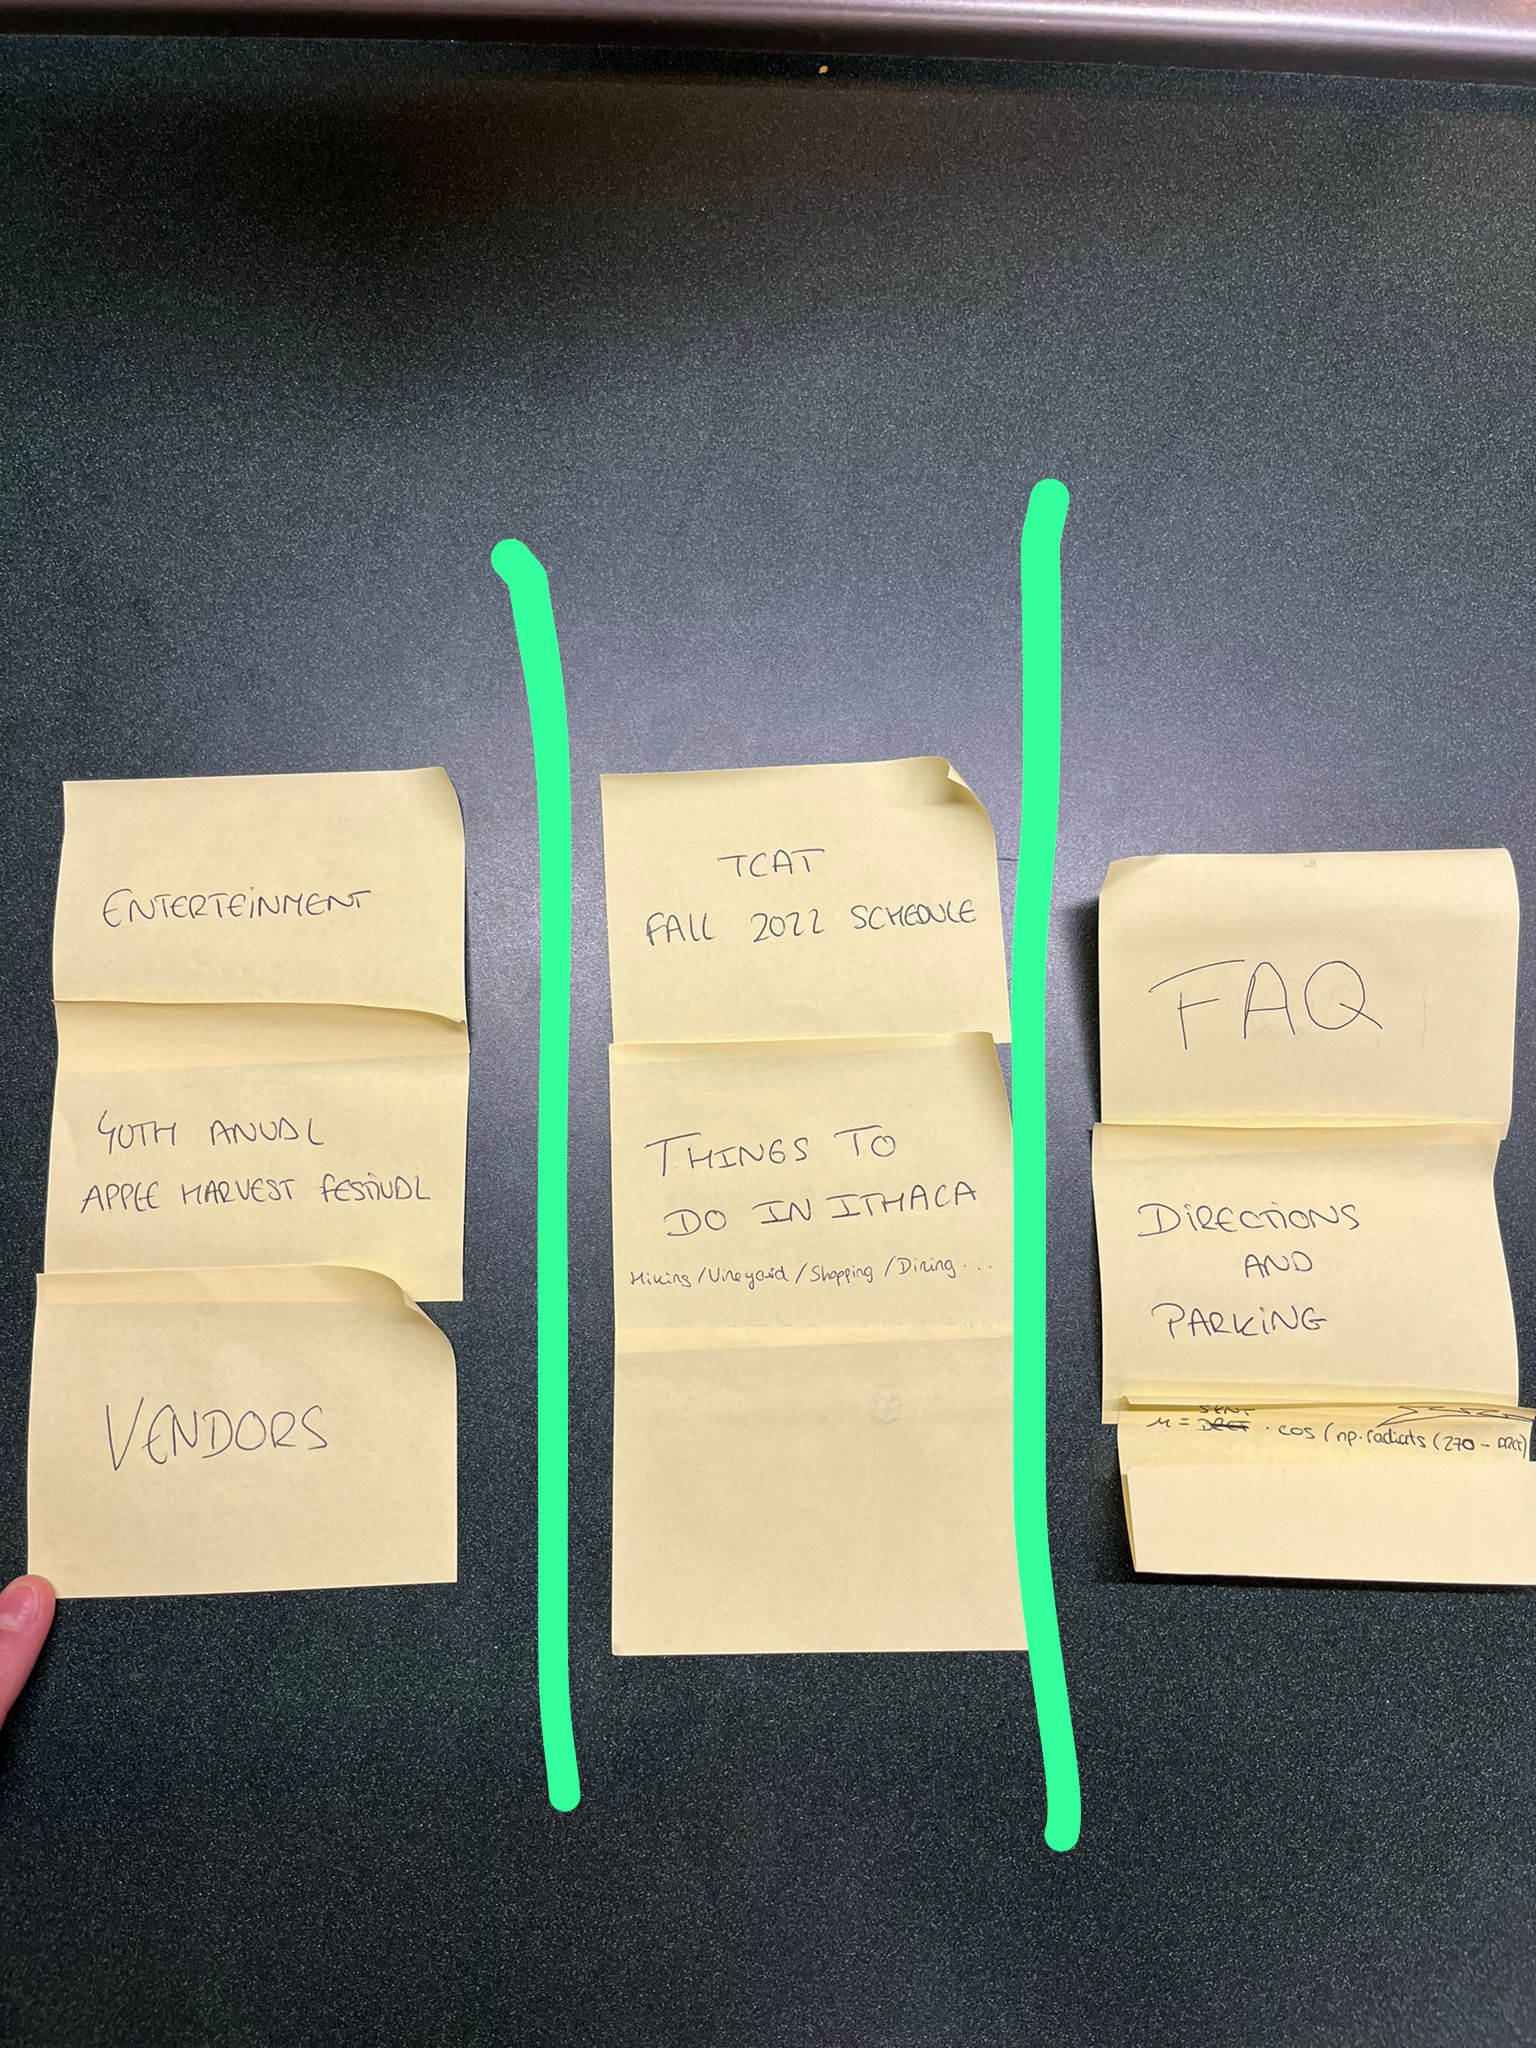 ENTERTEINMENT
40TH ANUAL
APPLE HARVEST FESTIVAL
VENDORS
TCAT
FALL 2022 SCHEDULE
THINGS TO
DO IN ITHACA
Hiking / Vineyard / Shopping / Dining ...
FAQ
DIRECTIONS
AND
PARKING
SENT
= DRCT . cos (np.radiats (270 - DRCT)